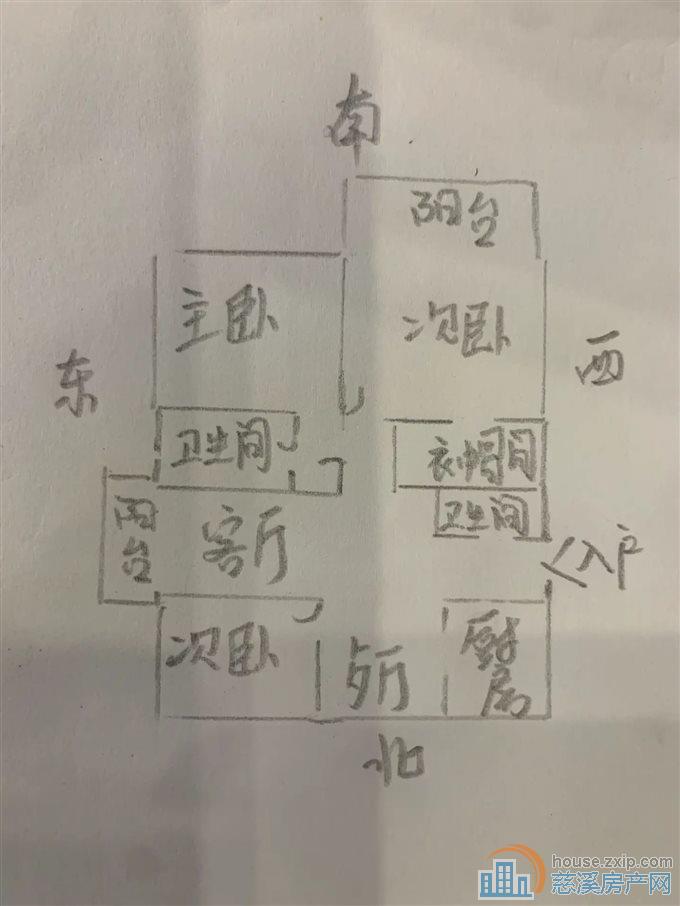 南
阳台
主卧
次卧
东
西
卫生间
衣帽间
阳台
客厅
卫生间
入户
次卧
厨房
北
house.zxip.com
慈溪房产网